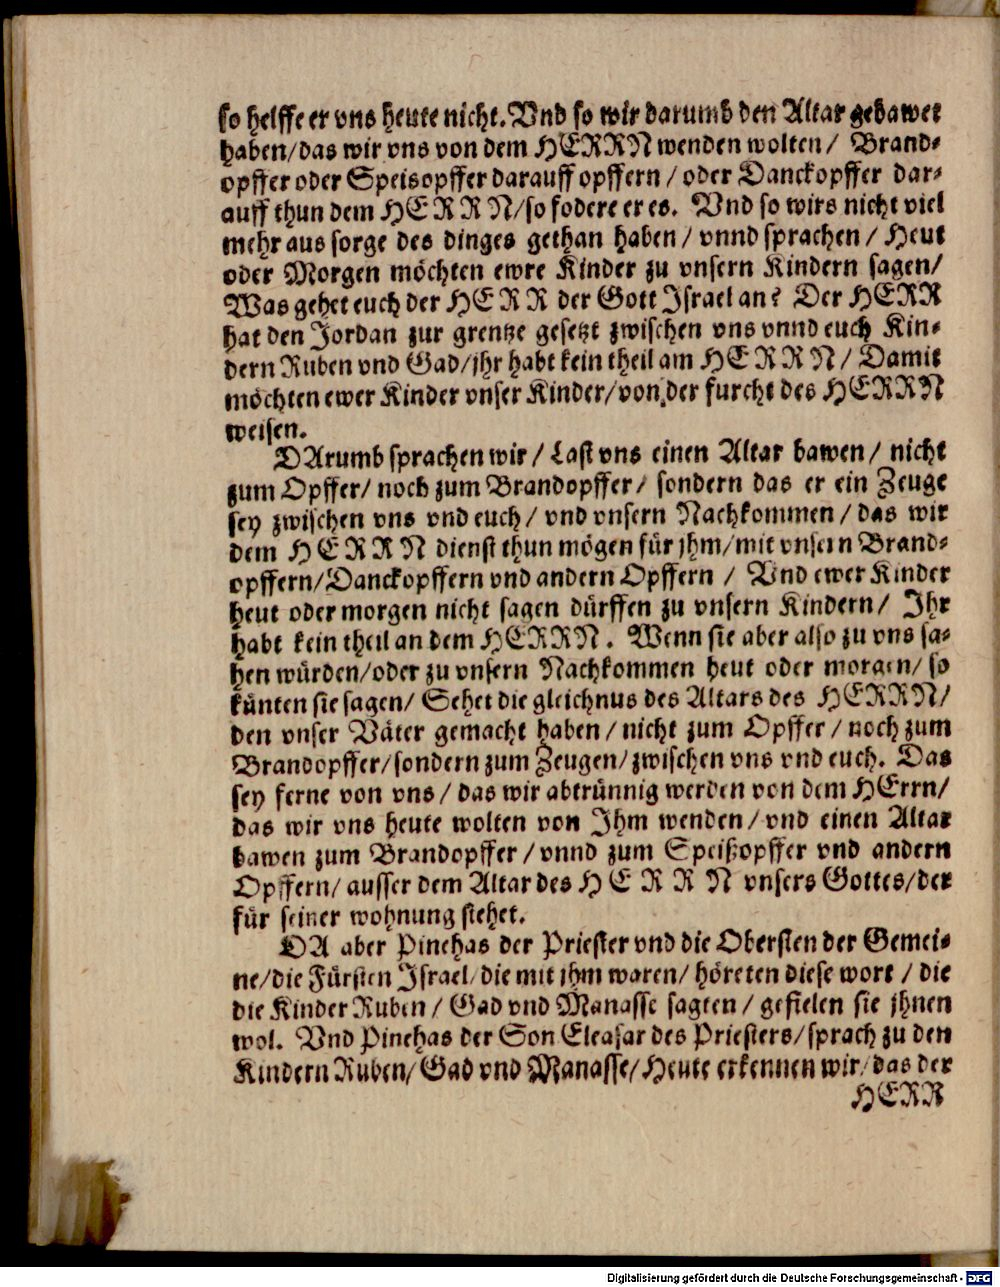 so helffe er vns heute nicht. Vnd so wir darumb den Altar gebawet
haben/das wir vns von dem HERRN wenden wolten/ Brand-
opffer oder Speisopffer darauff opffern/oder Danckopffer dar-
auff thun dem HERRN/so fodere er es. Vnd so wirs nicht viel
mehr aus sorge des dinges gethan haben/ vnnd sprachen/ Heut
oder Morgen möchten ewre Kinder zu vnsern Kindern sagen/
Was gehet euch der HERR der Gott Israel an? Der HERR
hat den Jordan zur grentze gesetzt zwischen vns vnnd euch Kin-
dern Ruben vnd Gad/jhr habt kein theil am HERRN/ Damit
möchten ewer Kinder vnser Kinder/von der furcht des HERRN
weisen.
DArumb sprachen wir/ Last vns einen Altar bawen/ nicht
zum Opffer/ noch zum Brandopffer/ sondern das er ein Zeuge
sey zwischen vns vnd euch/ vnd vnsern Nachkommen/das wir
dem HERRN dienst thun mögen für jhm/mit vnsern Brand-
opffern/Danckopffern vnd andern Opffern/ Vnd ewer Kinder
heut oder morgen nicht sagen dürffen zu vnsern Kindern/ Ihr
habt kein theil an dem HERRN. Wenn sie aber also zu vns sa-
hen würden/oder zu vnsern Nachkommen heut oder morgen/ so
künten sie sagen/ Sehet die gleichnus des Altars des HERRN/
den vnser Väter gemacht haben/ nicht zum Opffer/noch zum
Brandopffer/sondern zum Zeugen/zwischen vns vnd euch. Das
sey ferne von vns/ das wir abtrünnig werden von dem HErrn/
das wir vns heute wolten von Ihm wenden/vnd einen Altar
bawen zum Brandopffer/vnnd zum Speißopffer vnd andern
Opffern/ausser dem Altar des HERRN vnsers Gottes/der
für seiner wohnung stehet.
DA aber Pinehas der Priester vnd die Obersten der Gemei-
ne/die Fürsten Israel/die mit jhm waren/höreten diese wort/die
die Kinder Ruben/ Gad vnd Manasse sagten/ gefielen sie jhnen
wol. Vnd Pinehas der Son Eleasar des Priesters/sprach zu den
Kindern Ruben/Gad vnd Manasse/Heute erkennen wir/das der
HERR
Digitalisierung gefördert durch die Deutsche Forschungsgemeinschaft - DFG